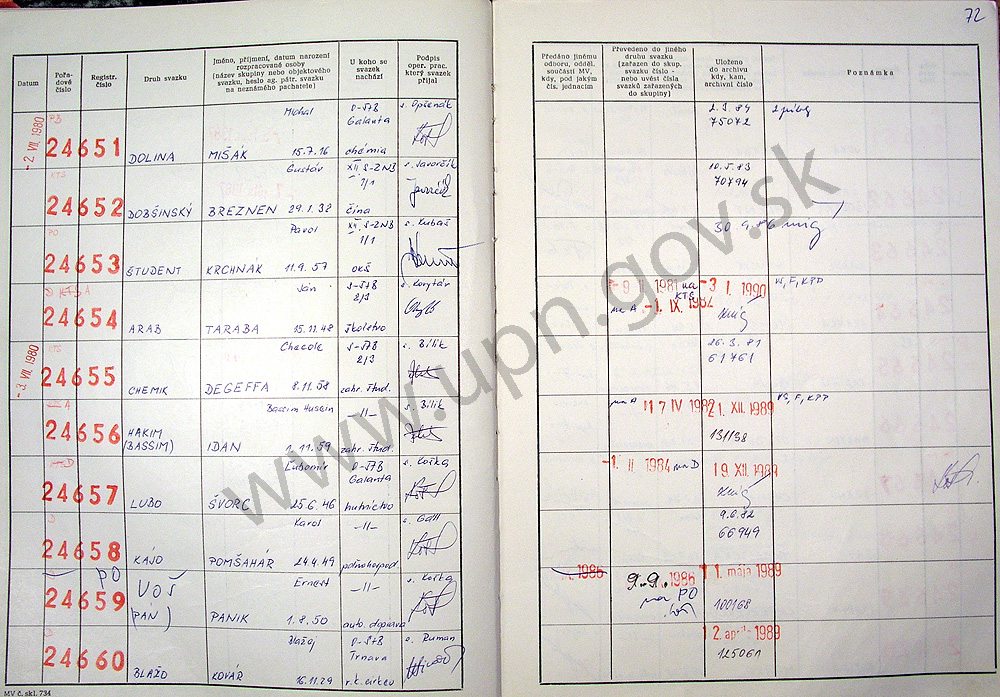 72
Datum
Pořadové číslo
Registr. číslo
Druh svazku
Jméno, příjmení, datum narození rozpracované osoby (název skupiny nebo objektového svazku, heslo ag. pátr. svazku na neznámého pachatele)
U koho se svazek nachází
Podpis oper. prac. který svazek přijal
Předáno jinému odboru, odděl. součásti MV, kdy, pod jakým čís. jednacím
Převedeno do jiného druhu svazku (zařazen do skup. svazku číslo - nebo uvést čísla svazků zařazených do skupiny)
Uloženo do archivu kdy, kam, archivní číslo
Poznámka
-2. VII. 1980
PB
24651
DOLINA
Michal
MIŠÁK 15.7.16
Galanta
chémia
s. Opšenák
2.3.84
75072
KTS
24652
DOBŠINSKÝ
Gustáv
BREZNEN 29.1.38
XII. S-ZNB
1/1
čína
s. Javorčík
10.5.83
70794
PO
24653
ŠTUDENT
Pavol
KRCHNÁK 11.9.57
XII. S-ZNB
1/1
s. Kubaš
30 9.86
24654
ARAB
Ján
TARABA 15.11.48
2/3
školstvo
s. Korytár
-9 1981 na KTS
na A -1. IX. 1982
-3 I. 1990
VS, F, KPD
-3. VII. 1980
KTS
24655
CHEMIK
Chacole
DEGEFFA 8.11.58
2/3
zahr. štud.
s. Bilik
26.3.81
61761
A
24656
HAKIM
(BASSIM)
Bassim Husein
IDAN 1.11.59
-11-
zahr. štud.
s. Bilik
na A 17 IV 1982
21. XII. 1989
131138
VS, F, KPD
D
24657
LUBO
Ľubomír
ŠVORC 25.6.46
Galanta
hutníctvo
s. Koška
-1. II 1984 na D
19. XII. 1989
D
24658
KAJO
Karol
POMŠAHÁR 24.4.49
-11-
poľnohospod.
s. Gáll
9.6.82
66949
PO
24659
VOŠ
(PÁN)
Ernest
PANIK 1.8.50
-11-
aut. doprava
s. Koška
1986
9.-9. 1986
na PO
11. mája 1989
100168
D
24660
BLAŽO
Blažej
KOVÁR 16.11.29
Trnava
r.k. cirkev
s. Ruman
12. apríla 1989
125061
MV č. skl. 734
www.upn.gov.sk